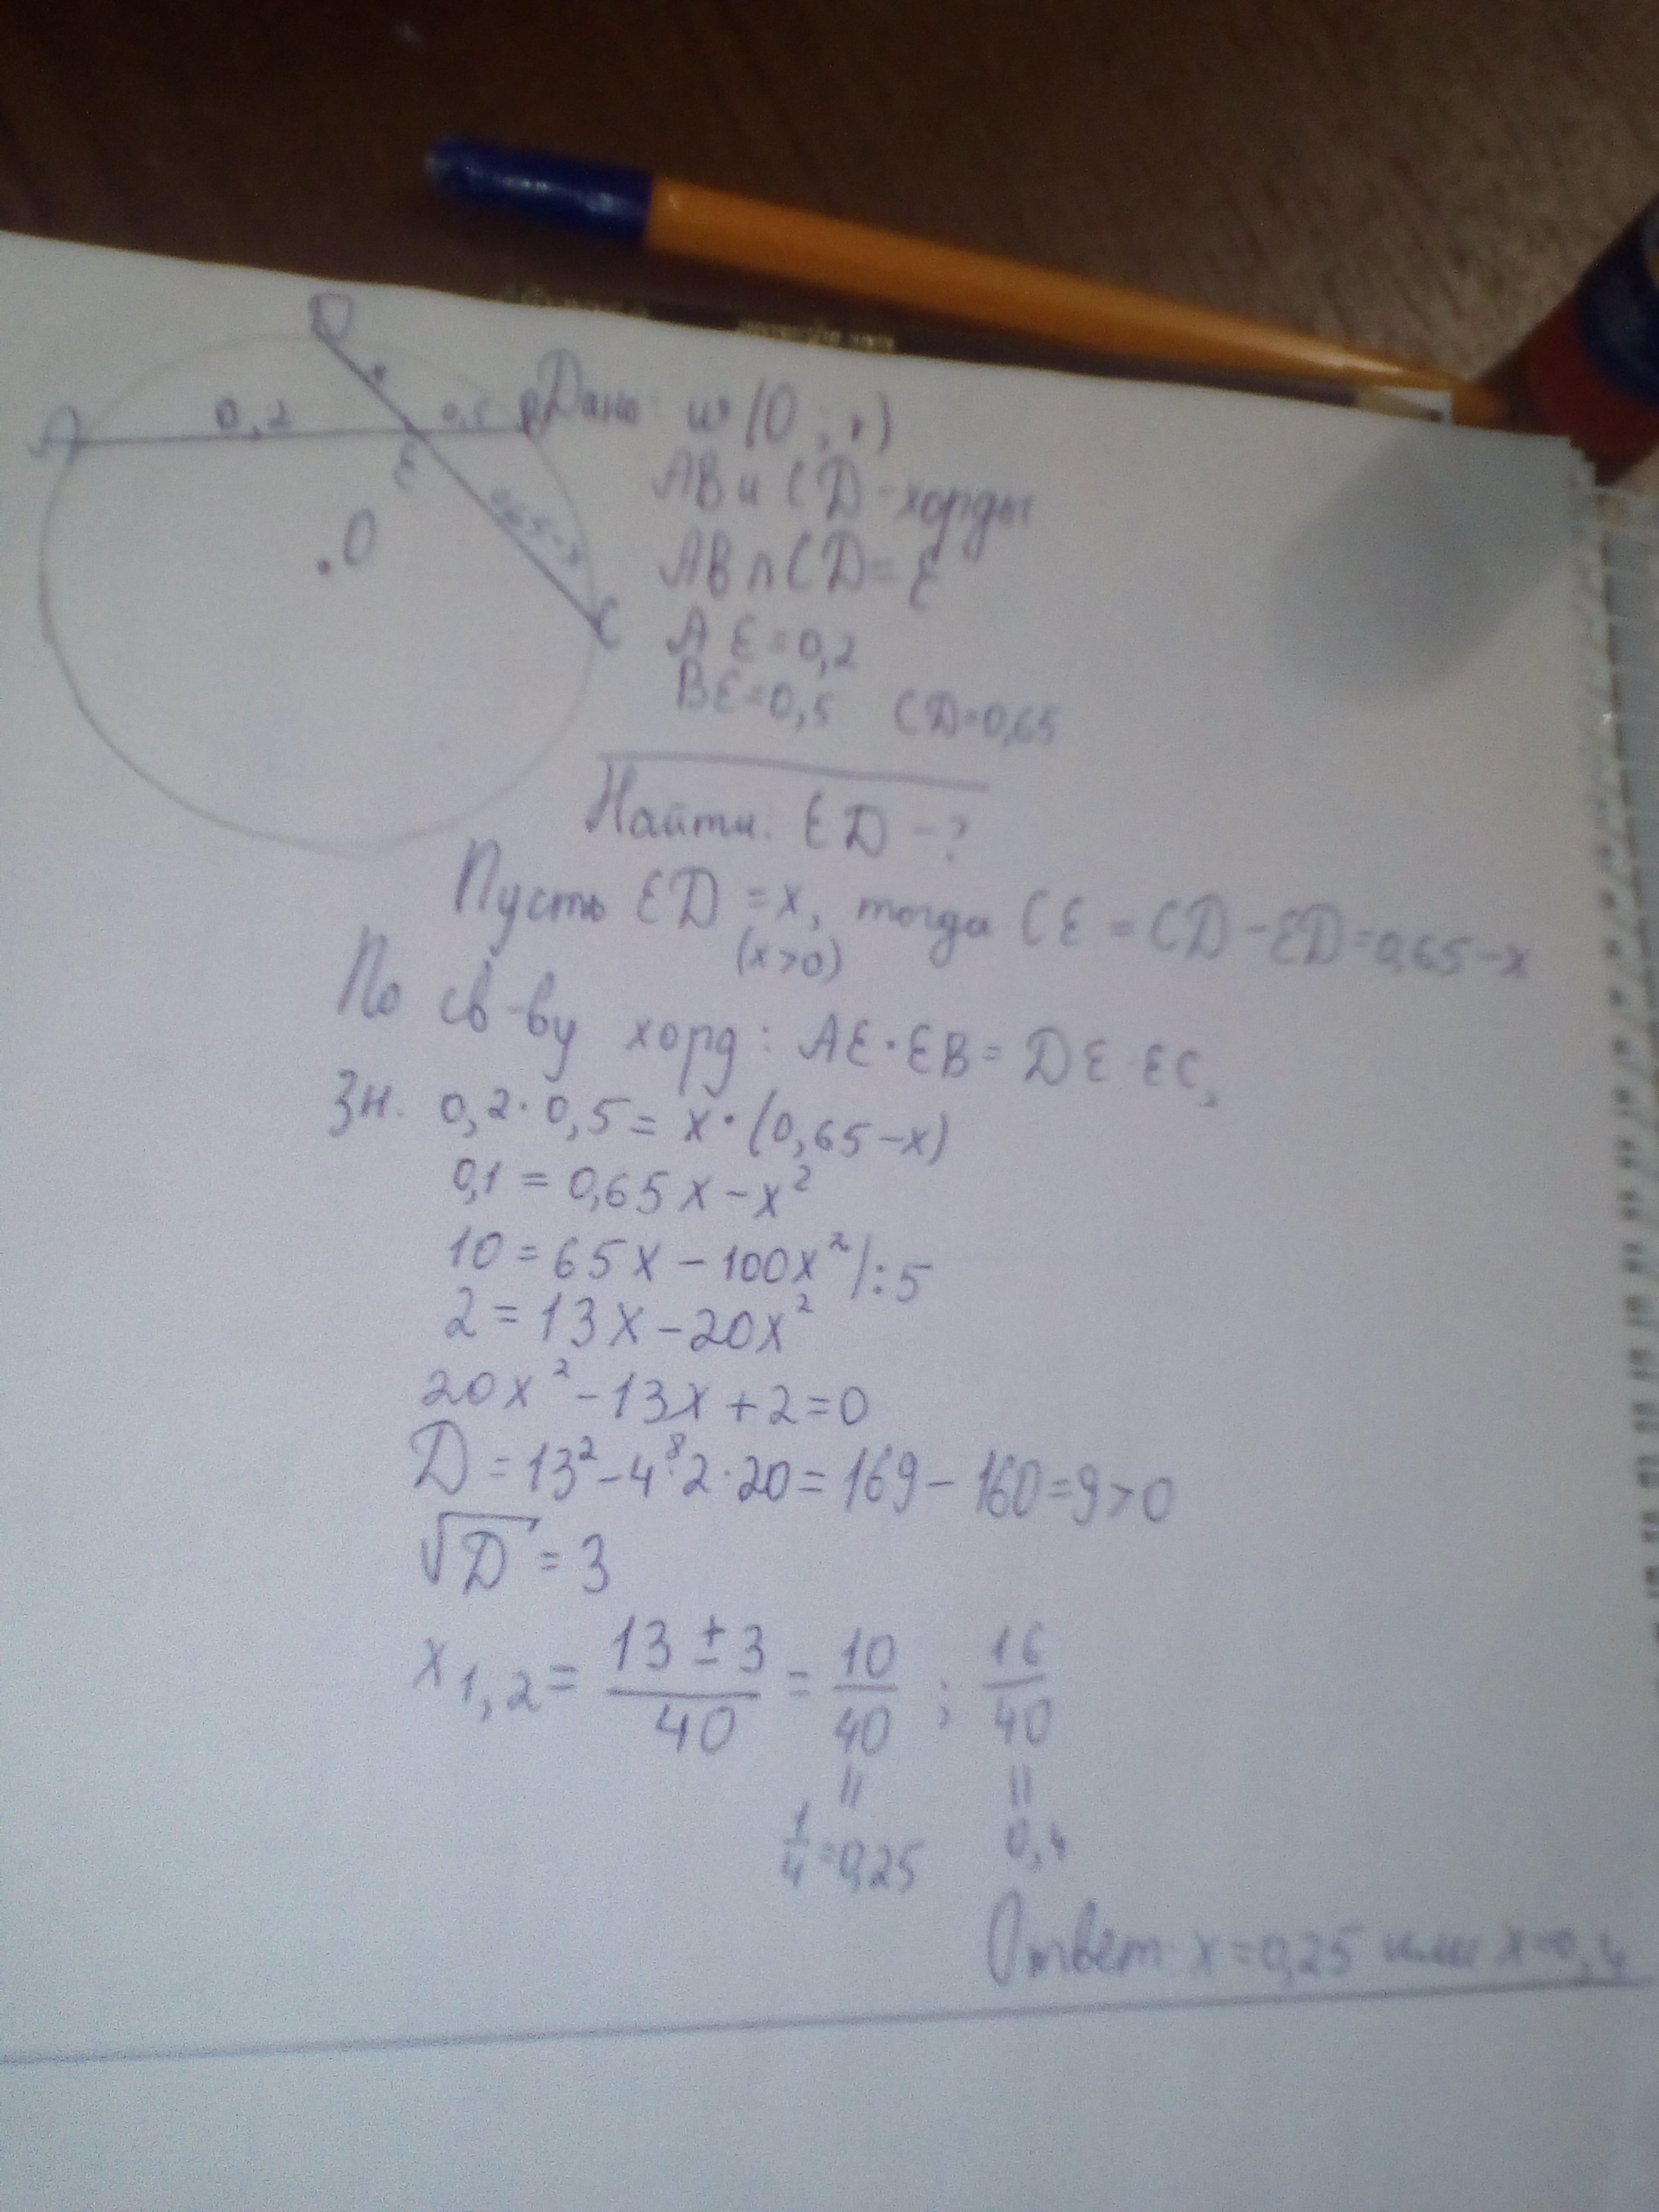 D
A 0,2 0,5 B
E
0,65-x
.O
C
Дано: w(O; r)
AB и CD - хорды
AB ∩ CD = E
AE = 0,2
BE = 0,5 CD = 0,65
Найти: ED - ?
Пусть ED = x, тогда CE = CD - ED = 0,65 - x
(x > 0)
По св-ву хорд: AE · EB = DE · EC,
Зн. 0,2 · 0,5 = x · (0,65 - x)
0,1 = 0,65x - x²
10 = 65x - 100x² |:5
2 = 13x - 20x²
20x² - 13x + 2 = 0
D = 13² - 4 · 2 · 20 = 169 - 160 = 9 > 0
8
√D = 3
x₁,₂ = (13 ± 3)/40 = 10/40 ; 16/40
= =
1/4 = 0,25 0,4
Ответ: x = 0,25 или x = 0,4